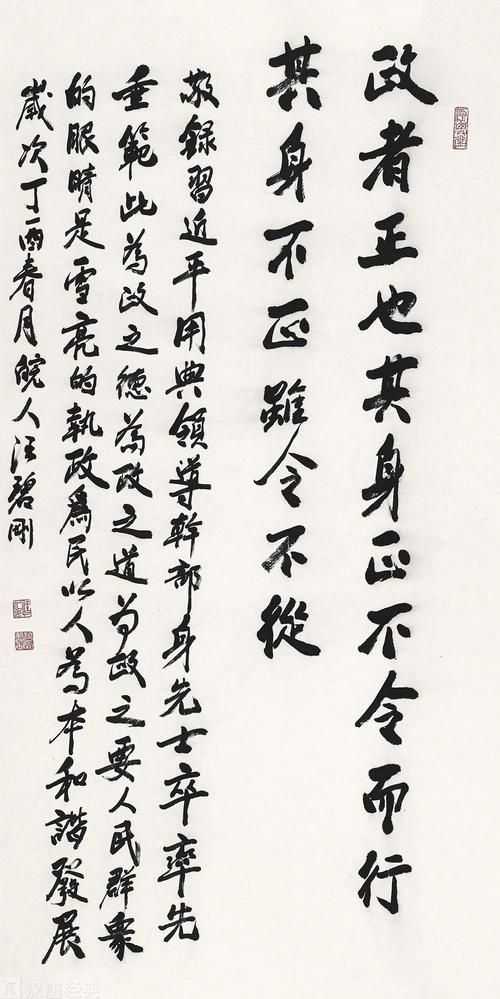 政者正也其身正不令而行
其身不正雖令不從
敬錄習近平用典領導幹部身先士卒率先
垂範此為政之德為政之道為政之要人民群衆
的眼睛是雪亮的執政爲民以人為本和諧發展
歲次丁酉春月皖人汪碧剛
汉唐经典